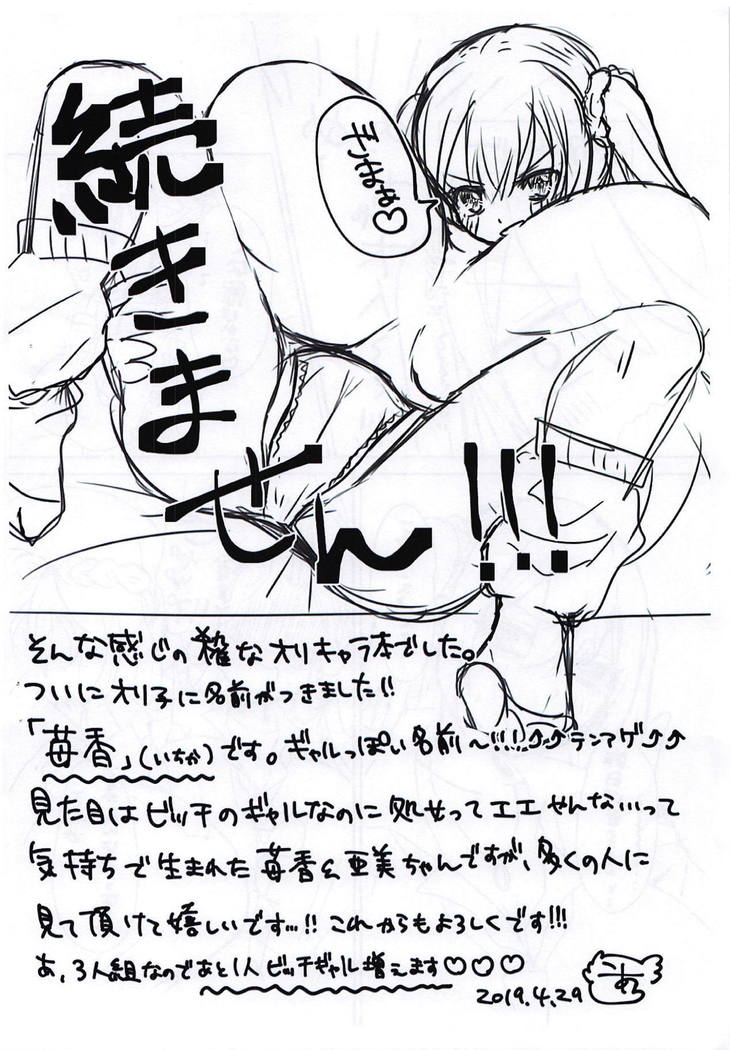 続きません!!!
ぎぃ♡
そんな感じの雑なオリキャラ本でした。
ついにオリ子に名前がつきました!!
「苺香」(いちか)です。ギャルっぽい名前〜!!!⤴⤴テンアゲ⤴⤴
見た目はビッチのギャルなのに処女ってエエやんないいって
気持ちで生まれた苺香&亜美ちゃんですが、多くの人に
見て頂けて嬉しいです…!! これからもよろしくです!!!
あ、3人組なのであと1人ビッチギャル増えます♡♡♡
2019.4.29